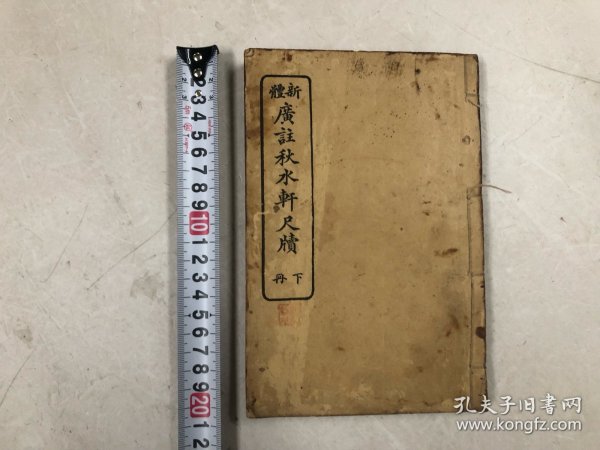 新體
廣註秋水軒尺牘
下冊
2 3 4 5 6 7 8 9 10 1 2 3 4 5 6 7 8 9 20 1 2
孔夫子旧书网
www.kongfz.com